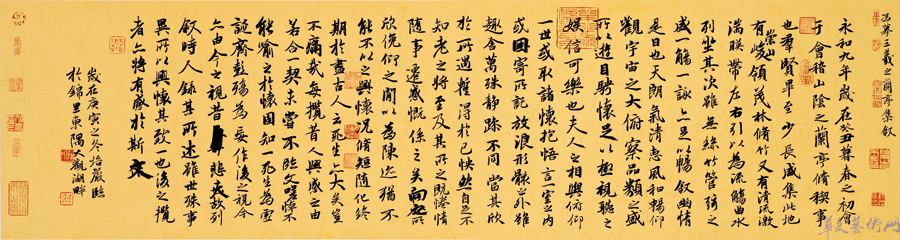 摹王羲之蘭亭集叙
永和九年歲在癸丑暮春之初會
于會稽山陰之蘭亭脩稧事
也羣賢畢至少長咸集此地
有崇山峻領茂林脩竹又有清流激
湍暎帶左右引以為流觴曲水
列坐其次雖無絲竹管弦之
盛一觴一詠亦足以暢叙幽情
是日也天朗氣清惠風和暢仰
觀宇宙之大俯察品類之盛
所以遊目騁懷足以極視聽之
娛信可樂也夫人之相與俯仰
一世或取諸懷抱悟言一室之內
或因寄所託放浪形骸之外雖
趣舍萬殊靜躁不同當其欣
於所遇暫得於己快然自足不
知老之將至及其所之既惓情
隨事遷感慨係之矣向之所
欣俛仰之間以為陳迹猶不
能不以之興懷況脩短隨化終
期於盡古人云死生亦大矣豈
不痛哉每攬昔人興感之由
若合一契未嘗不臨文嗟悼不
能喻之於懷固知一死生為虛
誕齊彭殤為妄作後之視今
亦由今之視昔悲夫故列
叙時人錄其所述雖世殊事
異所以興懷其致一也後之攬
者亦將有感於斯文
歲在庚寅之冬臨
於錦里東隅湖畔
華夏藝術网